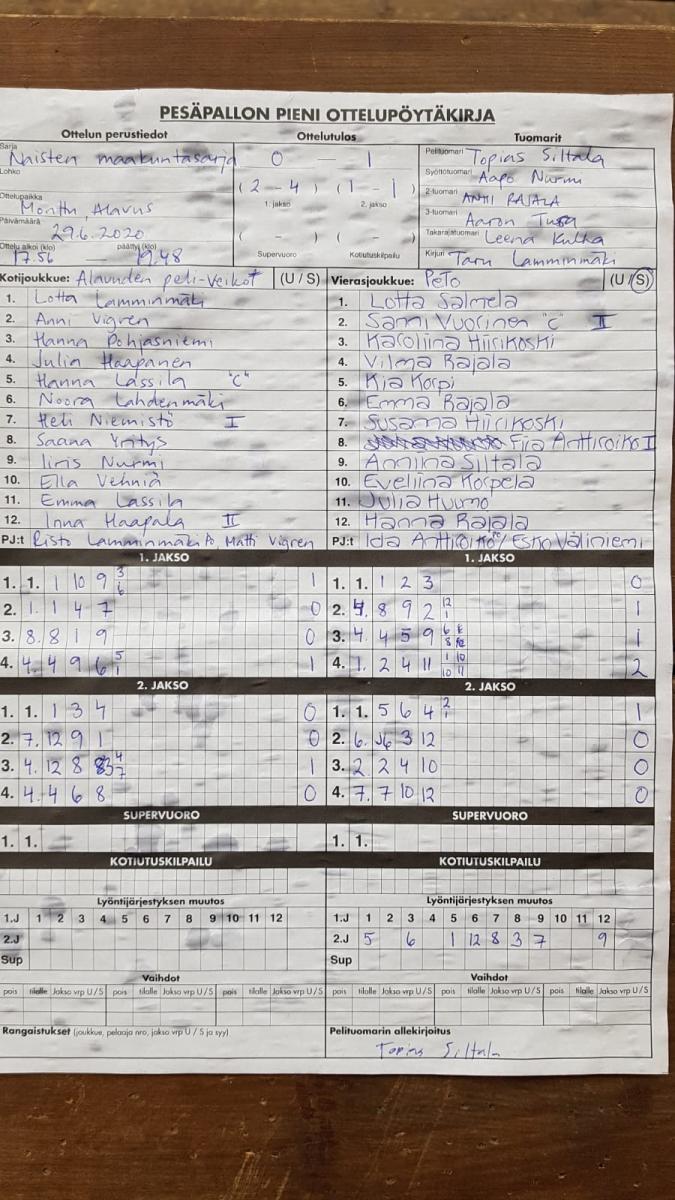 PESÄPALLON PIENI OTTELUPÖYTÄKIRJA
Ottelun perustiedot Ottelutulos Tuomarit
Sarja Naisten maakuntasarja
Lohko
Ottelupaikka Monttu, Alavus
Päivämäärä 29.6.2020
Ottelu alkoi (klo) päättyi (klo)
17.56 — 19.48
0 — 1
(2 - 4) (1 - 1)
1. jakso 2. jakso
( - ) ( - )
Supervuoro Kotiutuskilpailu
Pelituomari Topias Siltala
Syöttötuomari Aapo Nurmi
2-tuomari ANTTI RAJALA
3-tuomari Aaron
Takarajatuomari Leena Kulha
Kirjuri Taru Lamminmäki
Kotijoukkue: Alavuden peli-Veikot (U / S)
1. Lotta Lamminmäki
2. Anni Vigren
3. Hanna Pohjasniemi
4. Julia Haapanen
5. Hanna Lassila "C"
6. Noora Lahdenmäki
7. Heli Niemistö I
8. Saana Yritys
9. Iiris Nurmi
10. Ella Vehniä
11. Emma Lassila
12. Inna Haapala II
PJ:t Risto Lamminmäki, Matti Vigren
Vierasjoukkue: PeTo (U / S)
1. Lotta Salmela
2. Sanni Vuorinen "C" II
3. Karoliina Hiirikoski
4. Vilma Rajala
5. Kia Korpi
6. Emma Rajala
7. Susanna Hiirikoski
8. Fira Anttiroiko I
9. Anniina Siltala
10. Eveliina Korpela
11. Julia Huumo
12. Hanna Rajala
PJ:t Ida Anttiroiko / Esko Väliniemi
1. JAKSO
1. 1. 1 10 9 3 6 1
2. 1. 1 4 7 0
3. 8. 8 1 9 0
4. 4. 4 9 6 5 1 1
2. JAKSO
1. 1. 1 3 4 0
2. 7. 12 9 1 0
3. 4. 12 8 3 4 7 1
4. 4. 4 6 8 0
SUPERVUORO
1. 1.
KOTIUTUSKILPAILU
Lyöntijärjestyksen muutos
1.J 1 2 3 4 5 6 7 8 9 10 11 12
2.J
Sup
Vaihdot
pois tilalle Jakso vrp U / S pois tilalle Jakso vrp U / S pois tilalle Jakso vrp U / S
Rangaistukset (joukkue, pelaaja nro, jakso vrp U / S ja syy)
1. JAKSO
1. 1. 1 2 3 0
2. 4. 8 9 2 12 1 1
3. 4. 4 5 9 6 8 1
4. 1. 2 4 11 1 10 10 11 2
2. JAKSO
1. 1. 5 6 4 2 1 1
2. 6. 6 3 12 0
3. 2 2 4 10 0
4. 7. 7 10 12 0
SUPERVUORO
1. 1.
KOTIUTUSKILPAILU
Lyöntijärjestyksen muutos
1.J 1 2 3 4 5 6 7 8 9 10 11 12
2.J 5 6 1 12 8 3 7 9
Sup
Vaihdot
pois tilalle Jakso vrp U / S pois tilalle Jakso vrp U / S pois tilalle Jakso vrp U / S
Pelituomarin allekirjoitus
Topias Siltala